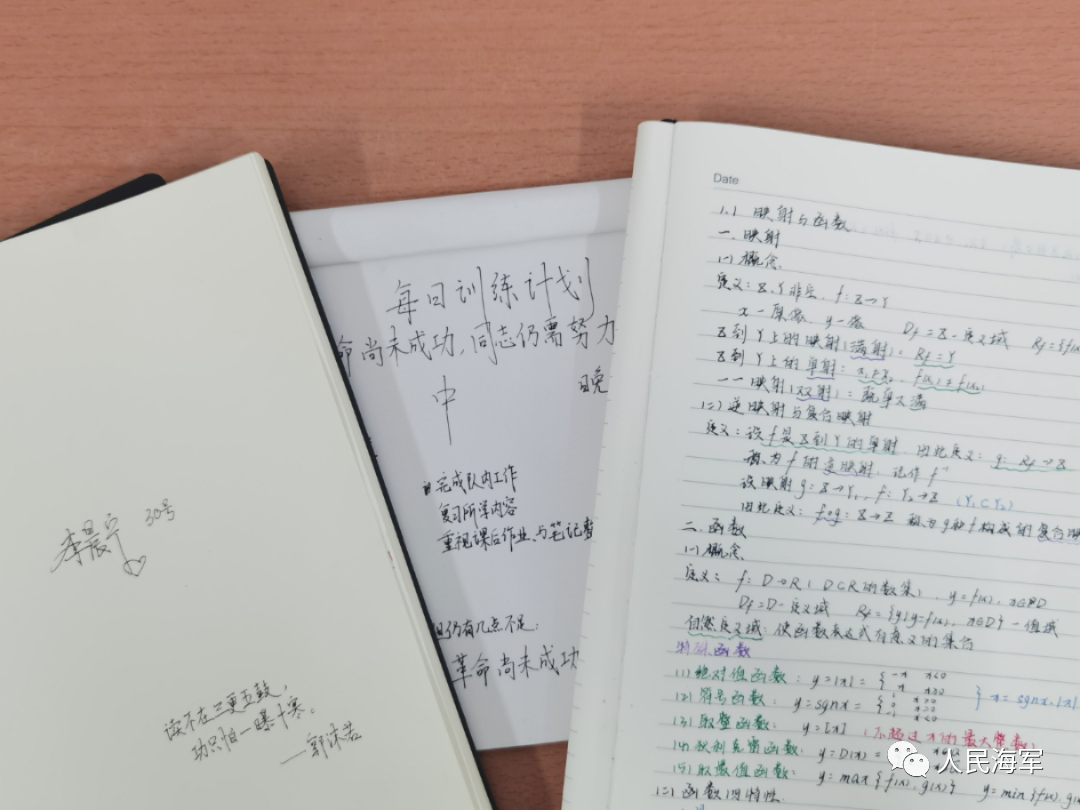 李晨宁 30号
读不在三更五鼓,
功只怕一曝十寒。
——郭沫若
每日训练计划
命尚未成功,同志仍需努力
中 晚
完成队内工作
复习所学内容
重视课后作业、与笔记
但仍有几点不足:
革命尚未成功
Date
1.1 映射与函数
一.映射
(一)概念.
定义:X.Y非空. f:X→Y
x—原像. y—像 Df=X-定义域 Rf={f(x)
X到Y上的映射(满射). Rf=Y
X到Y上的单射: x₁≠x₂, f(x₁)≠f(x₂)
一一映射(双射):既单又满
(二)逆映射与复合映射
定义:设f是X到Y的单射. 因此定义: g: Rf→X
称为f的逆映射. 记作f⁻¹
设映射g:X→Y₁, f:Y₂→Z (Y₁⊂Y₂)
因此定义: fog:X→Z 称为g和f构成的复合映
二.函数
(一)概念
定义: f:D→R(D⊂R的数集), y=f(x), x∈D
Df=D-定义域 Rf={y|y=f(x), x∈D}-值域
自然定义域:使函数表达式有意义的集合
特殊函数
(1)绝对值函数: y=|x|={-x x<0 x x≥0 } x=sgnx.|x|
(2)符号函数: y=sgnx={
(3)取整函数: y=[x] (不超过x的最大整数)
(4)狄利克雷函数: y=D(x)=
(5)取最值函数: y=max{f(x),g(x)} y=min{f(x),g(x
(二)函数的特性.
人民海军